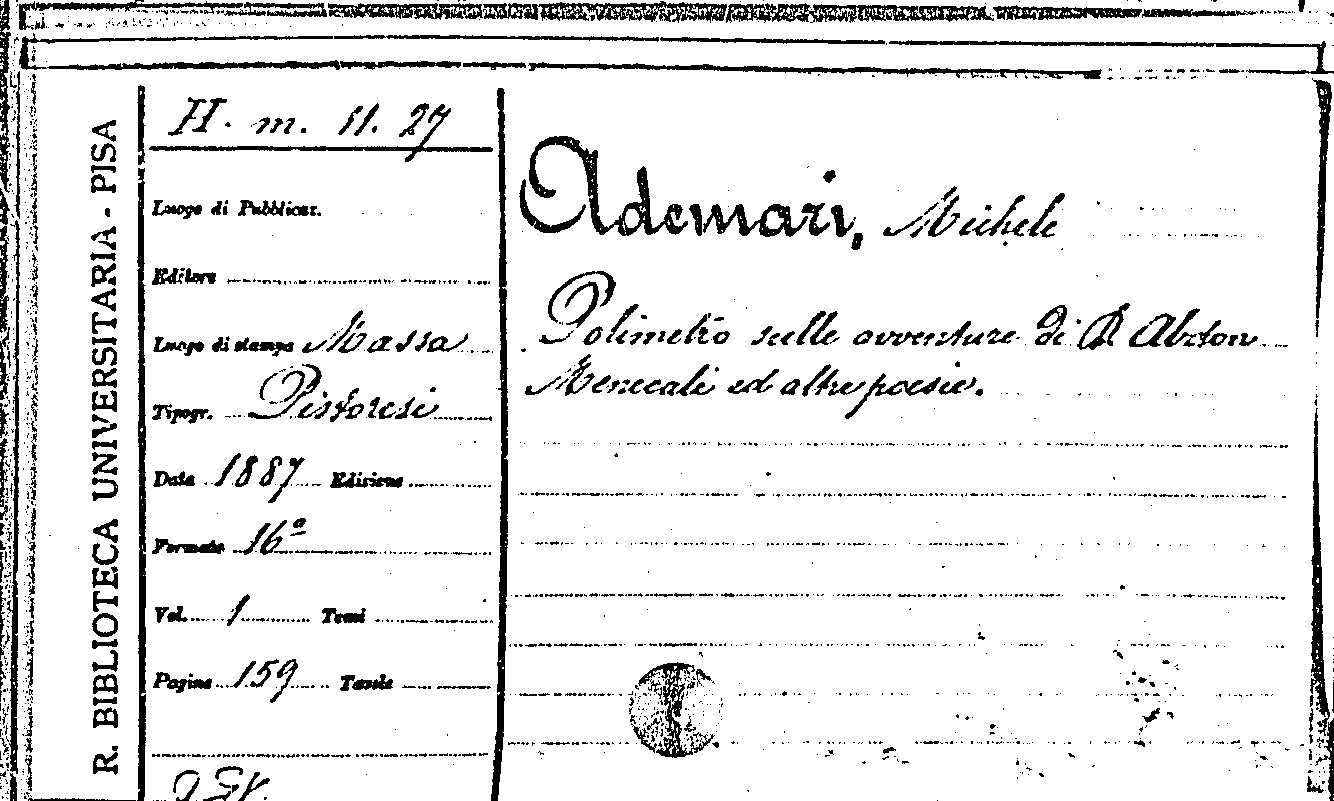 R. BIBLIOTECA UNIVERSITARIA - PISA
H. m. 11. 27
Luogo di Pubblicaz.
Editore
Luogo di stampa Massa
Tipogr. Pistoresi
Data 1887 Edizione
Formato 16º
Vol. 1 Tomi
Pagine 159 Tavole
Ademari, Michele
Polimetro sulle avventure di
Menecali ed altre poesie.